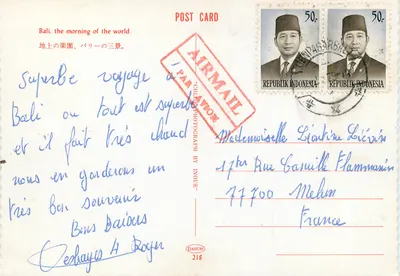 POST CARD
Bali, the morning of the world
地上の楽園、バリーの三景。
AIRMAIL
PAR AVION
50,-
50,-
REPUBLIK INDONESIA
REPUBLIK INDONESIA
Superbe voyage a
Bali ou tout est superbe
et il fait très chaud
nous en garderons un
très bon souvenir
Bons Baisers
Roger
Mademoiselle
17 Rue Camille Flammarion
77700 Melun
France
218